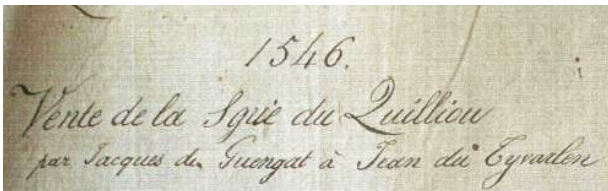 1546.
Vente de la Sgrie du Quilliou
par Jacques de Guengat à Jean du Tyvarlen